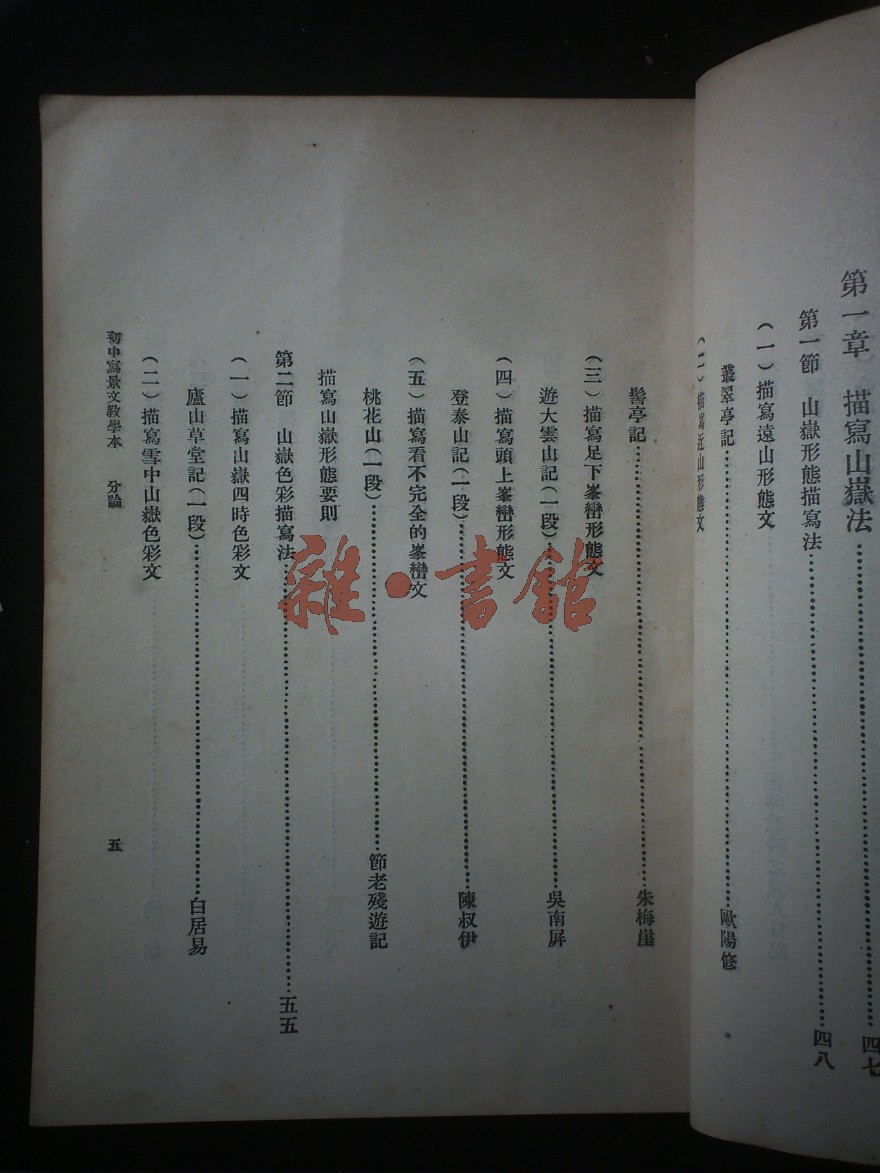 第一章　描寫山嶽法…………四七
第一節　山嶽形態描寫法…………四八
（一）描寫遠山形態文
叢翠亭記…………歐陽修
（二）描寫近山形態文
髻亭記…………朱梅崖
（三）描寫足下峯巒形態文
遊大雲山記（一段）…………吳南屏
（四）描寫頭上峯巒形態文
登泰山記（一段）…………陳叔伊
（五）描寫看不完全的峯巒文
桃花山（一段）…………節老殘遊記
描寫山嶽形態要則
第二節　山嶽色彩描寫法…………五五
（一）描寫山嶽四時色彩文
廬山草堂記（一段）…………白居易
（二）描寫雪中山嶽色彩文
初中寫景文教學本　分論　五
雜·書館